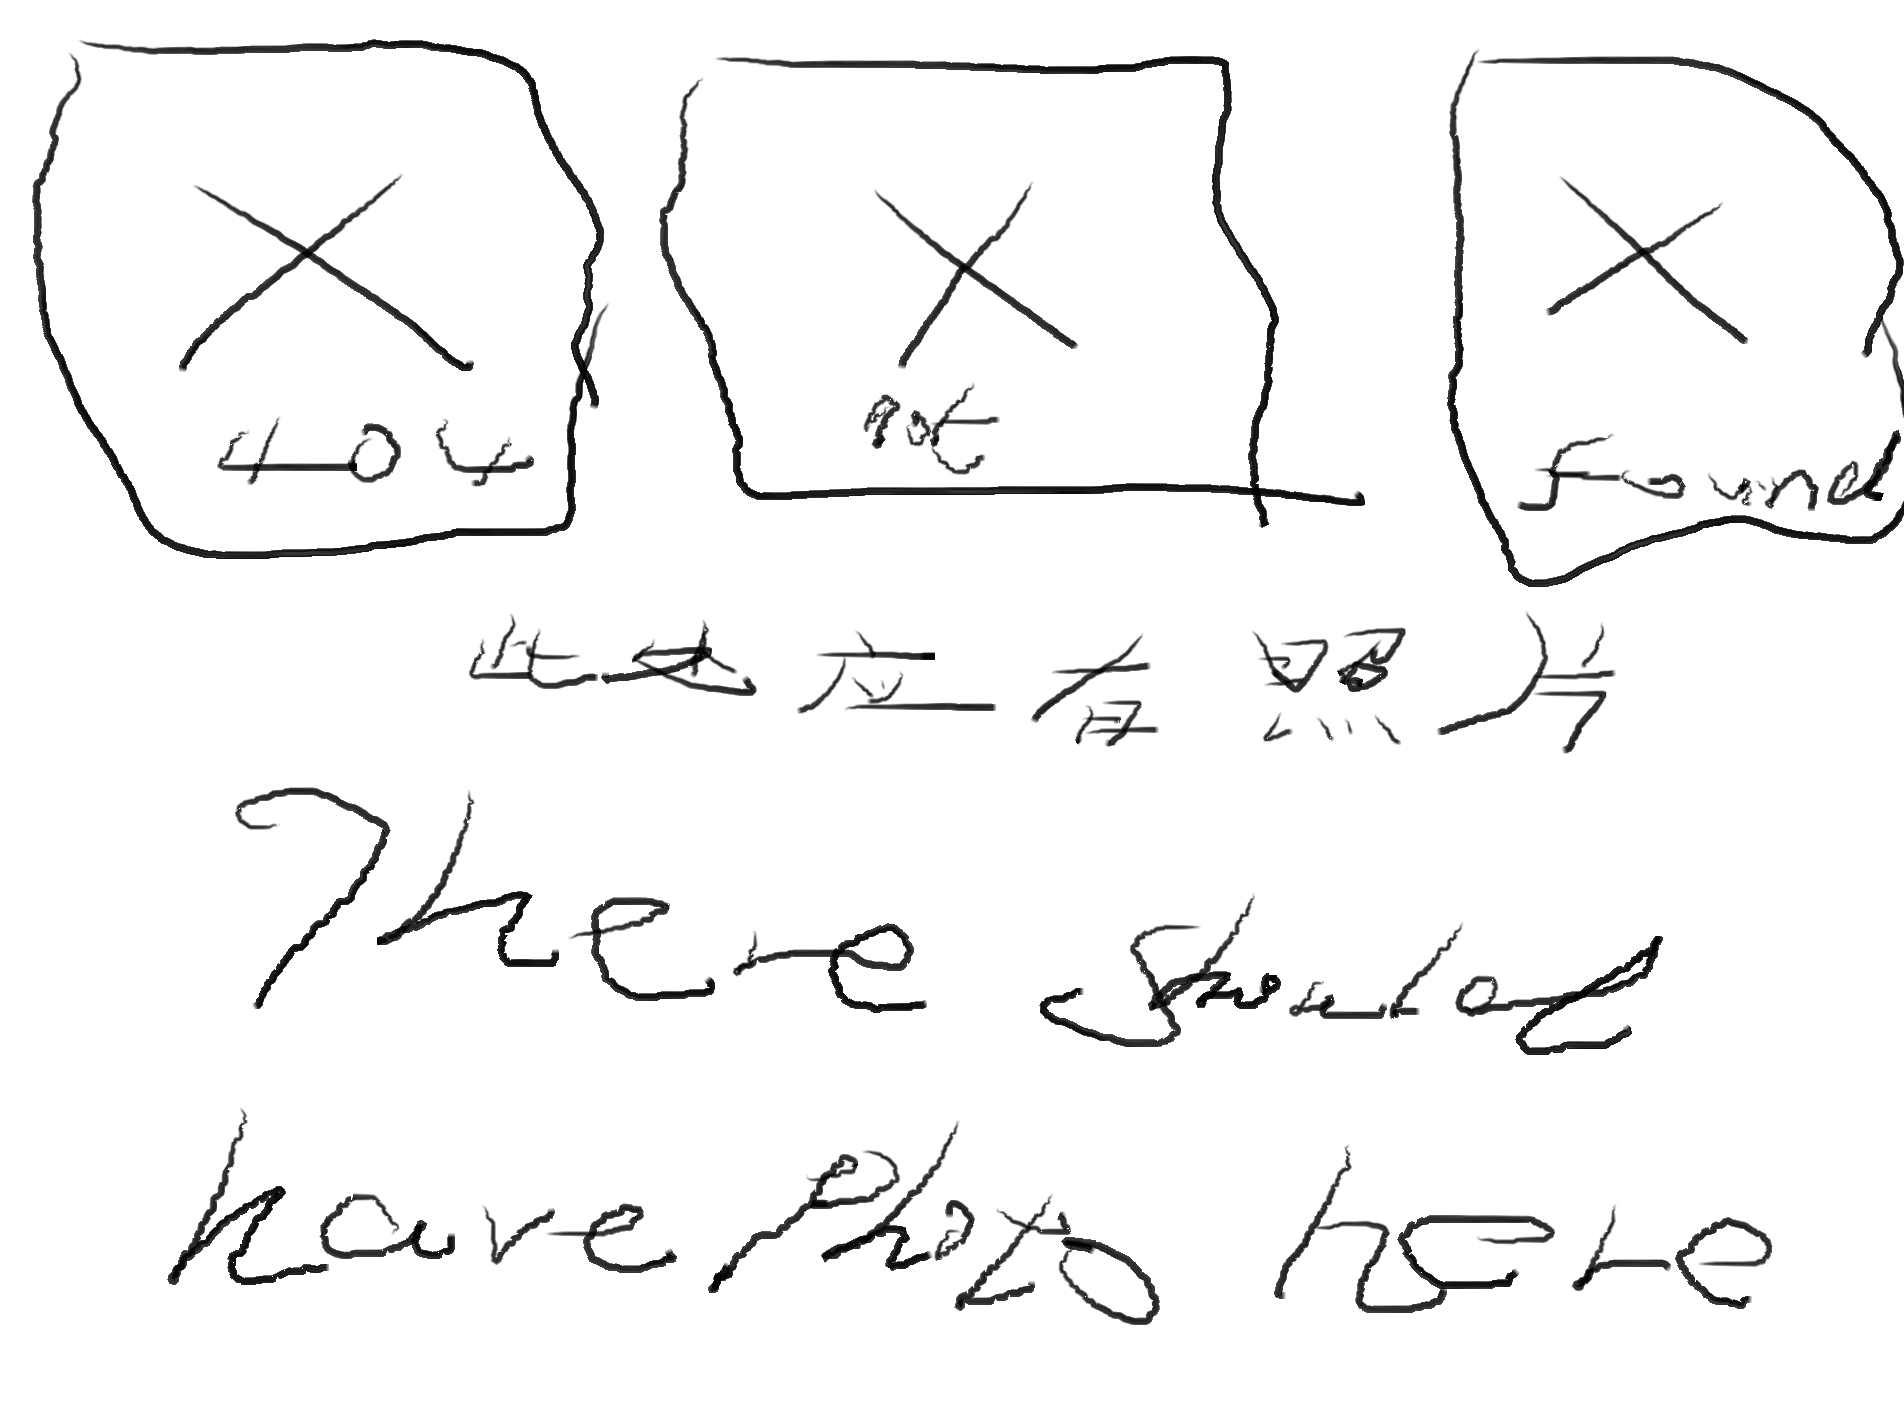 404 not found
此处应有照片
There should
have Photo here